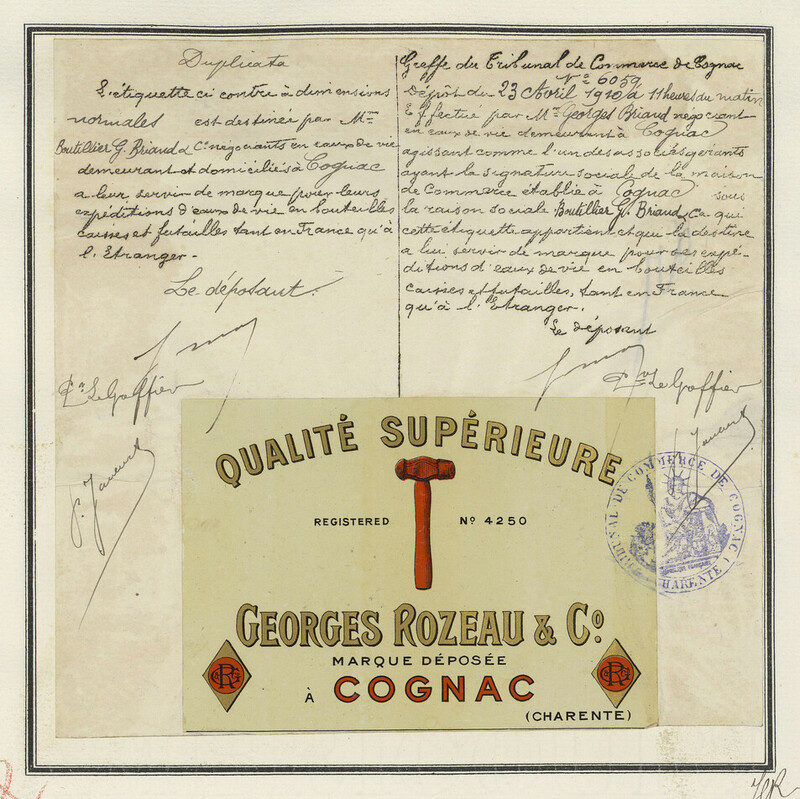 Duplicata
L'étiquette ci contre à dimensions
normales est destinée par Mrs
Boutillier G. Briand & Cie négociants en eaux de vie
demeurant et domiciliés à Cognac
a leur servir de marque pour leurs
expéditions d'eaux de vie en bouteilles
caisses et futailles tant en France qu'à
l'Etranger.
Le déposant.
Le Goffier
Greffe du Tribunal de Commerce de Cognac
No 6059
Dépôt du 23 Avril 1910 à 11 heures du matin
Effectué par Mr Georges Briand negociant
en eaux de vie demeurant à Cognac
agissant comme l'un des associés gérants
ayant la signature sociale de la maison
de Commerce établie à Cognac sous
la raison sociale Boutillier G. Briand & Cie qui
cette étiquette appartient et qui la destine
a lui servir de marque pour ses expé-
ditions d'eaux de vie en bouteilles
caisses et futailles, tant en France
qu'à l'Etranger.
Le déposant
Le Goffier
TRIBUNAL DE COMMERCE DE COGNAC
(CHARENTE)
QUALITÉ SUPÉRIEURE
REGISTERED No 4250
GEORGES ROZEAU & Co.
MARQUE DÉPOSÉE
À COGNAC
(CHARENTE)